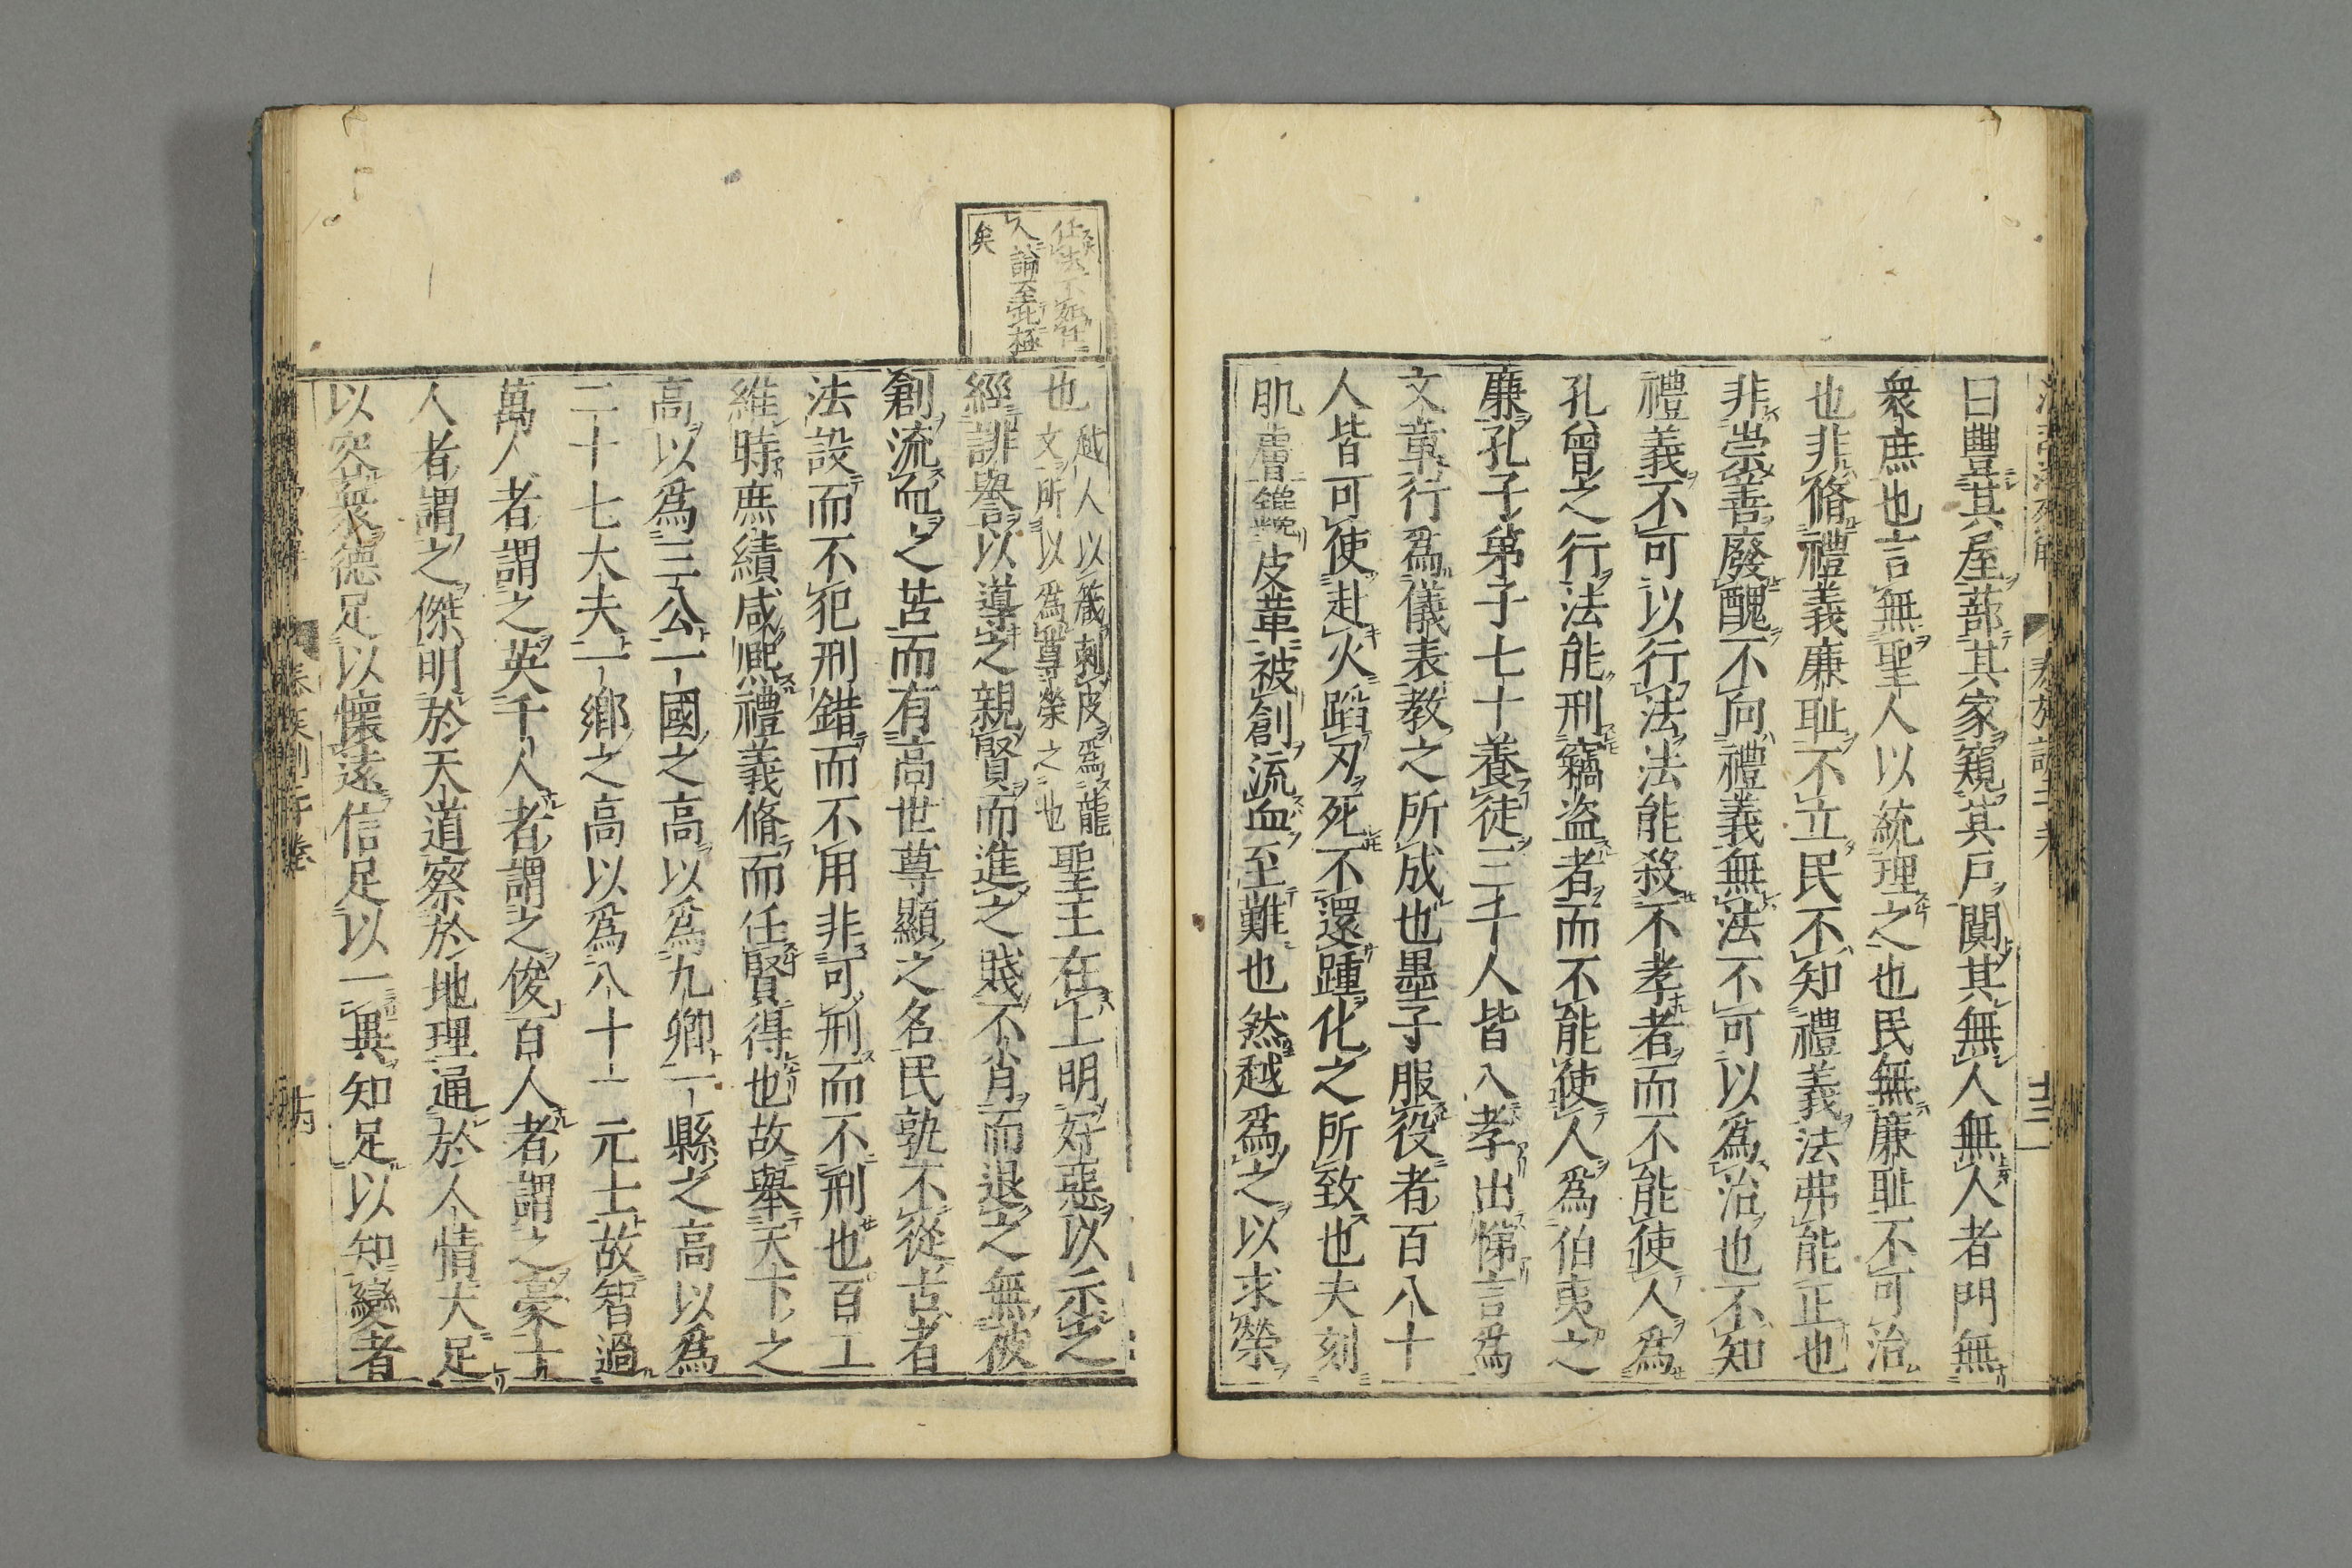 曰豐其屋蔀其家窺其戶闃其無人無人者門無
衆庶也言無聖人以統理之也民無廉耻不可治
也非脩禮義廉耻不立民不知禮義法弗能正也
非崇善廢醜不向禮義無法不可以為治也不知
禮義不可以行法法能殺不孝者而不能使人為
孔曾之行法能刑竊盗者而不能使人為伯夷之
廉孔子弟子七十養徒三千人皆入孝出悌言為
文章行為儀表教之所成也墨子服役者百八十
人皆可使赴火蹈刃死不還踵化之所致也夫刻
肌膚鑱皮革被創流血至難也然越為之以求榮
也越人以箴刺皮爲龍文所以爲尊榮之也聖王在上明好惡以示之
經誹譽以導之親賢而進之賤不肖而退之無被
創流血之苦而有高世尊顯之名民孰不從古者
法設而不犯刑錯而不用非可刑而不刑也百工
維時庶績咸熙禮義脩而任賢得也故舉天下之
高以為三公一國之高以爲九卿一縣之高以為
二十七大夫一鄉之高以為八十一元士故智過
萬人者謂之英千人者謂之俊百人者謂之豪十
人者謂之傑明於天道察於地理通於人情大足
以容衆德足以懷遠信足以一異知足以知變者
任法不如任
人論至此極
矣